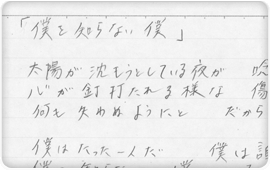 「僕を知らない僕」
太陽が沈もうとしている夜が
心が釘打たれる様な 傷
何も失わぬようにと だから
僕はたった一人だ 僕は